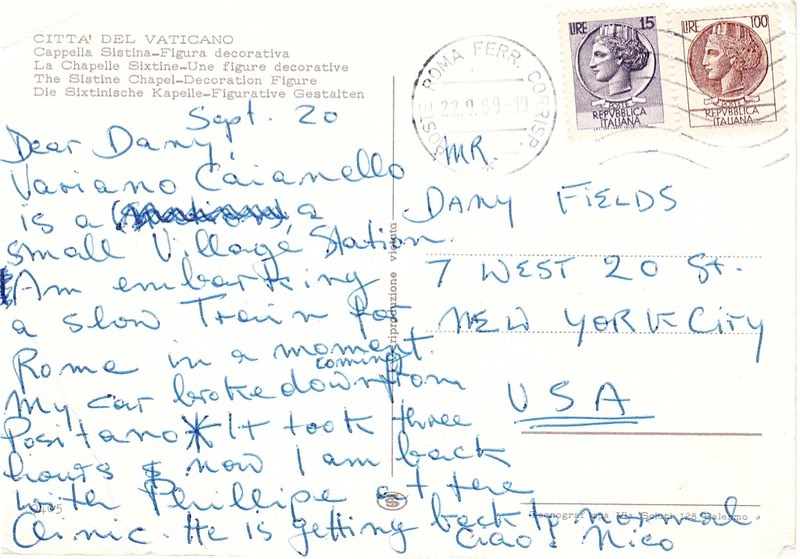 CITTA' DEL VATICANO
Cappella Sistina-Figura decorativa
La Chapelle Sixtine-Une figure decorative
The Sistine Chapel-Decoration Figure
Die Sixtinische Kapelle-Figurative Gestalten
Sept. 20
Dear Dany,
Variano Caianello
is a a
small Village Station.
Am embarking
a slow Train for
Rome in a moment.
coming
My car broke down from
Positano * It took three
hours & now I am back
with Phillipe at the
Clinic. He is getting back to normal
Ciao! Nico
POSTE ROMA FERR. CORRISP.
22.9.69-19
LIRE 15
POSTE
REPVBBLICA
ITALIANA
LIRE 100
POSTE
REPVBBLICA
ITALIANA
MR.
DANY FIELDS
7 WEST 20 St.
NEW YORK CITY
USA
riproduzione vietata
128